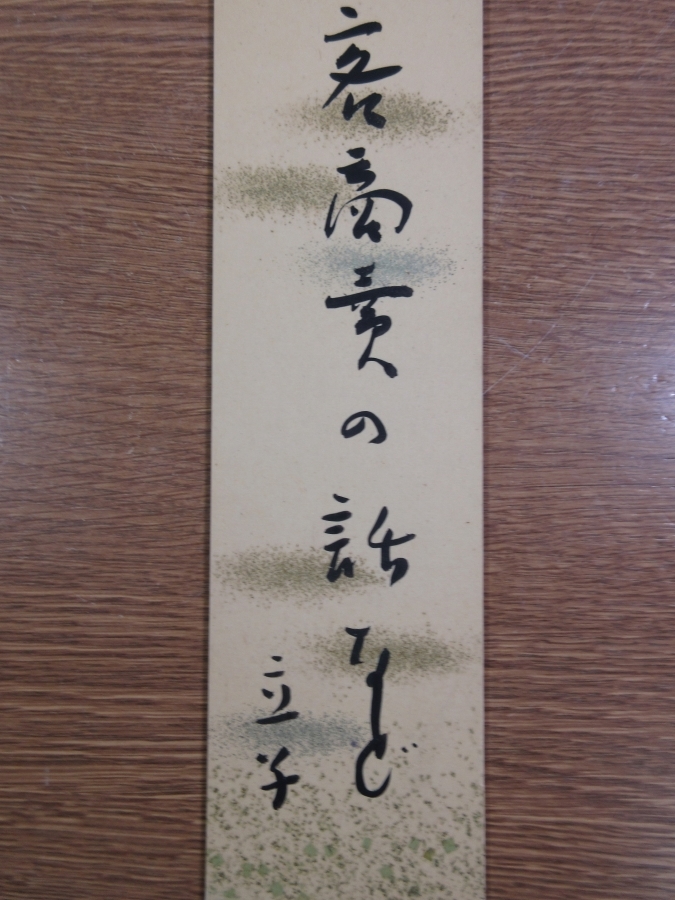 客商賣の話など
立子